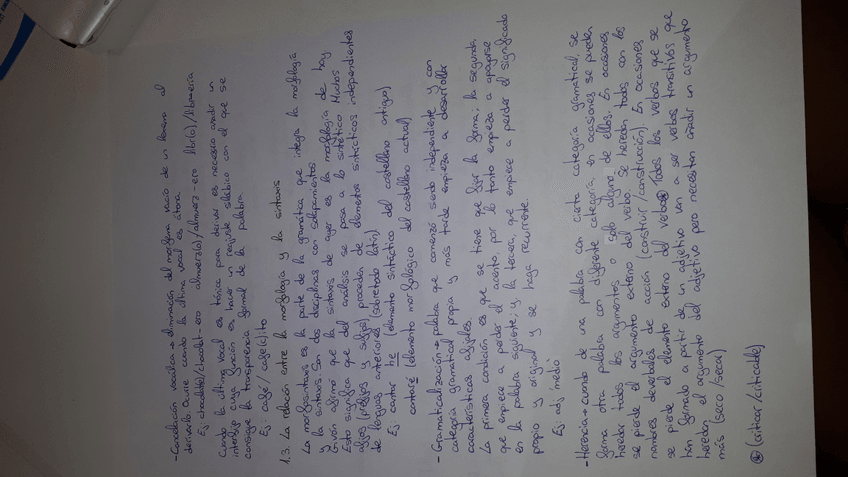 - Cancelación vocálica → eliminación del morfema vacío de un lexema al
derivarlo. Ocurre cuando la última vocal es átona.
Ej: chocolat(e)/chocolat-ero almuerz(o)/almuerz-ero libr(o)/librería
Cuando la última vocal es tónica para derivar es necesario añadir un
interfijo cuya función es hacer un reajuste silábico con el que se
consigue la transparencia formal de la palabra.
Ej: café / cafe(c)ito
1.3. La relación entre la morfología y la sintaxis
La morfosintaxis es la parte de la gramática que integra la morfología
y la sintaxis. Son dos disciplinas con solapamientos
Givón afirmó que la sintaxis de ayer es la morfología de hoy
Esto significa que del análisis se pasa a lo sintético. Muchos
afijos (prefijos y sufijos) proceden de elementos sintácticos independientes
de lenguas anteriores (sobretodo latín)
Ej: cantar he (elemento sintáctico del castellano antiguo)
cantaré (elemento morfológico del castellano actual)
- Gramaticalización → palabra que comenzó siendo independiente y con
categoría gramatical propia y más tarde empieza a desarrollar
características afijales.
La primera condición es que se tiene que fijar la forma, la segunda,
que empiece a perder el acento, por lo tanto empieza a apoyarse
en la palabra siguiente; y la tercera, que empiece a perder el significado
propio y original y se haga recurrente.
Ej: adj. medio
- Herencia → cuando de una palabra con cierta categoría gramatical, se
forma otra palabra con diferente categoría, en ocasiones se pueden
heredar todos los argumentos o solo alguno de ellos. En ocasiones
se pierde el argumento externo del verbo. Se heredan todos con los
nombres deverbales de acción (construir/construcción). En ocasiones
se pierde el elemento externo del verbo⊛ Todos los verbos que se
han formado a partir de un adjetivo van a ser verbos transitivos que
heredan el argumento del adjetivo pero necesitan añadir un argumento
más (seco/secar)
⊛ (criticar/criticable)